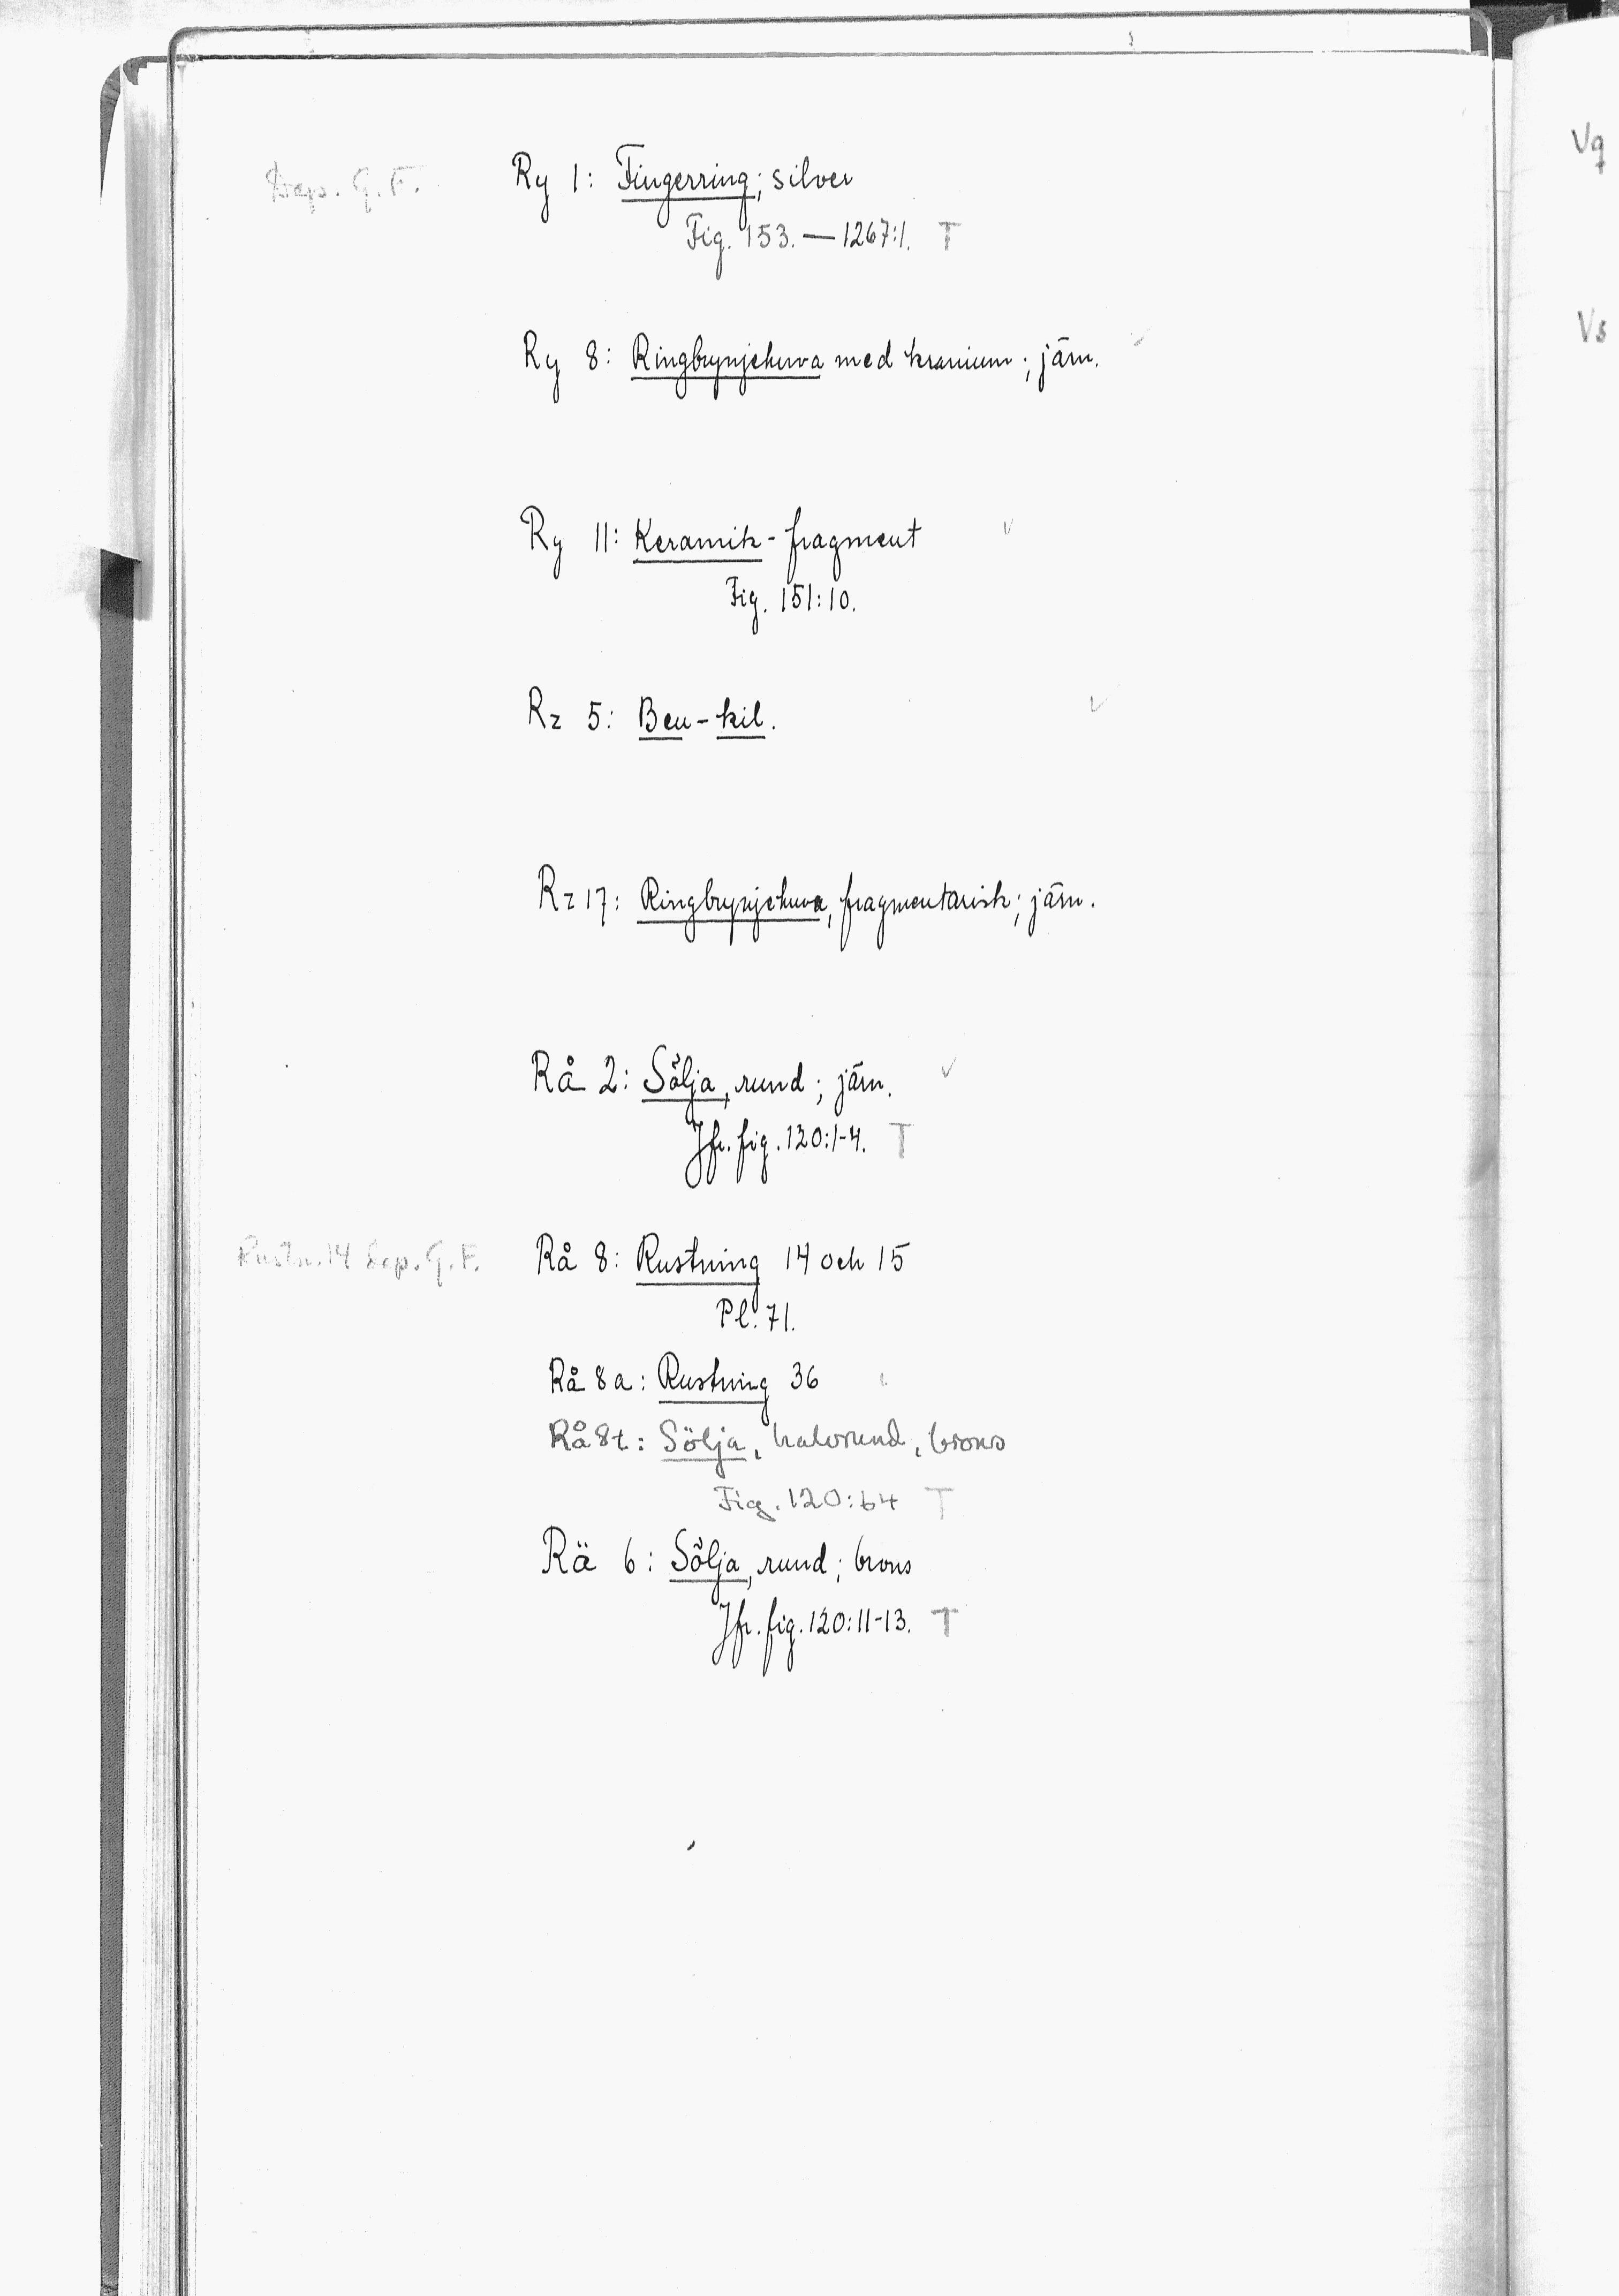 Dep. G. F. Ry 1: Fingerring; silver
Fig. 153. — 1267:1. T
Ry 8: Ringbrynjehuva med kranium; järn. ✓
Ry 11: Keramik-fragment ✓
Fig. 151:10.
Rz 5: Ben-kil. ✓
Rz 17: Ringbrynjehuva, fragmentarisk; järn.
Rå 2: Sölja, rund; järn. ✓
Jfr. fig. 120:1-4. T
Rustn. 14 Dep. G. F. Rå 8: Rustning 14 och 15
Pl. 71.
Rå 8a: Rustning 36
Rå 8t: Sölja, halvrund, brons
Fig. 120:64 T
Rä 6: Sölja, rund; brons
Jfr. fig. 120:11-13. T
Vq
Vs